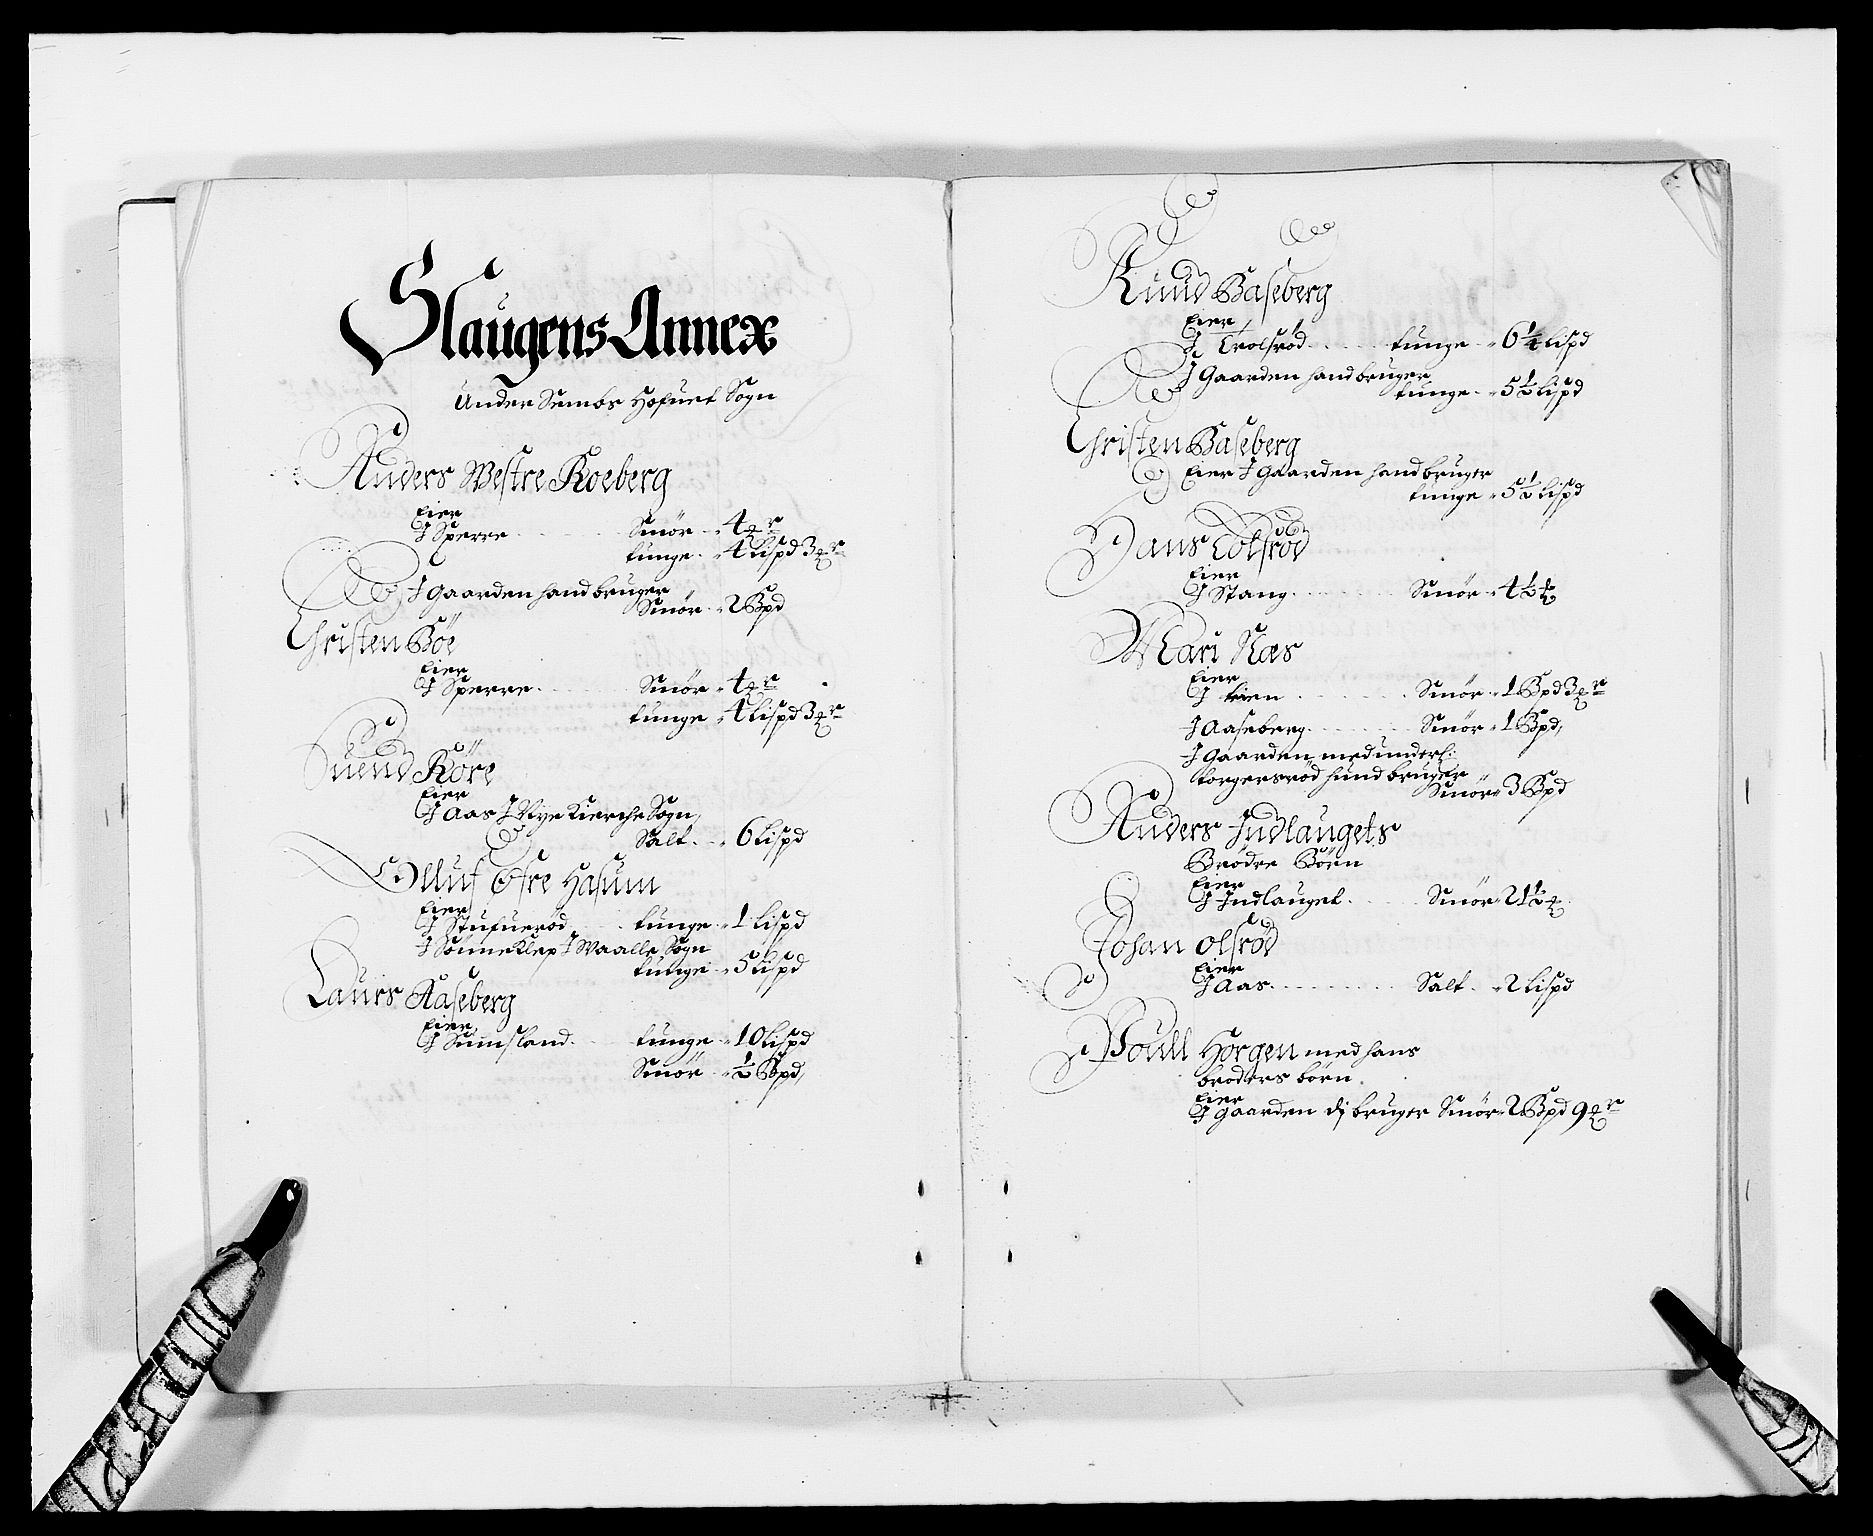 Slaugens Annex
Under Sembs Hofuet Sogn
Anders Westre Roeberg
Eier
J Sperre Smör 4
tunge 4 Lispd 3
J Gaarden hand bruger
Smör 2 Bpd
Christen Böe
Eier
J Sperre Smör 4
tunge 4 Lispd 3
Suend Röre
Eier
J Aas J Nye Kierche Sogn,
Salt 6 Lispd
Olluf Ofre Hasum
Eier
J Stufueröd tunge 1 Lispd
J Sönne Klep J Waalle Sogn
tunge 5 Lispd
Laurs Aaseberg
Eier
J Sumsland tunge 10 Lispd
Smör ½ Bpd,
Knud Baseberg
Eier
J Trolsröd tunge 6¼ Lispd
J Gaarden hand bruger
tunge 5½ Lispd
Christen Baseberg
Eier J Gaarden hand bruger
tunge 5½ Lispd
Hans Tolsröd
Eier
J Stang Smör 4½
Mari Næs
Eier
J Smör 1 Bpd 3
J Aaseberg Smör 1 Bpd,
J Gaarden med underl:
torgersröd hund bruger
Smör 3 Bpd
Anders Indlaugets
Brödre Börn
Eier
J Indlauget Smör 21½
Johan Olsröd
Eier
J Aas Salt 2 Lispd
Poull Horgen med hans
broders börn
Eier
J gaarden dj bruger Smör 2 Bpd 9